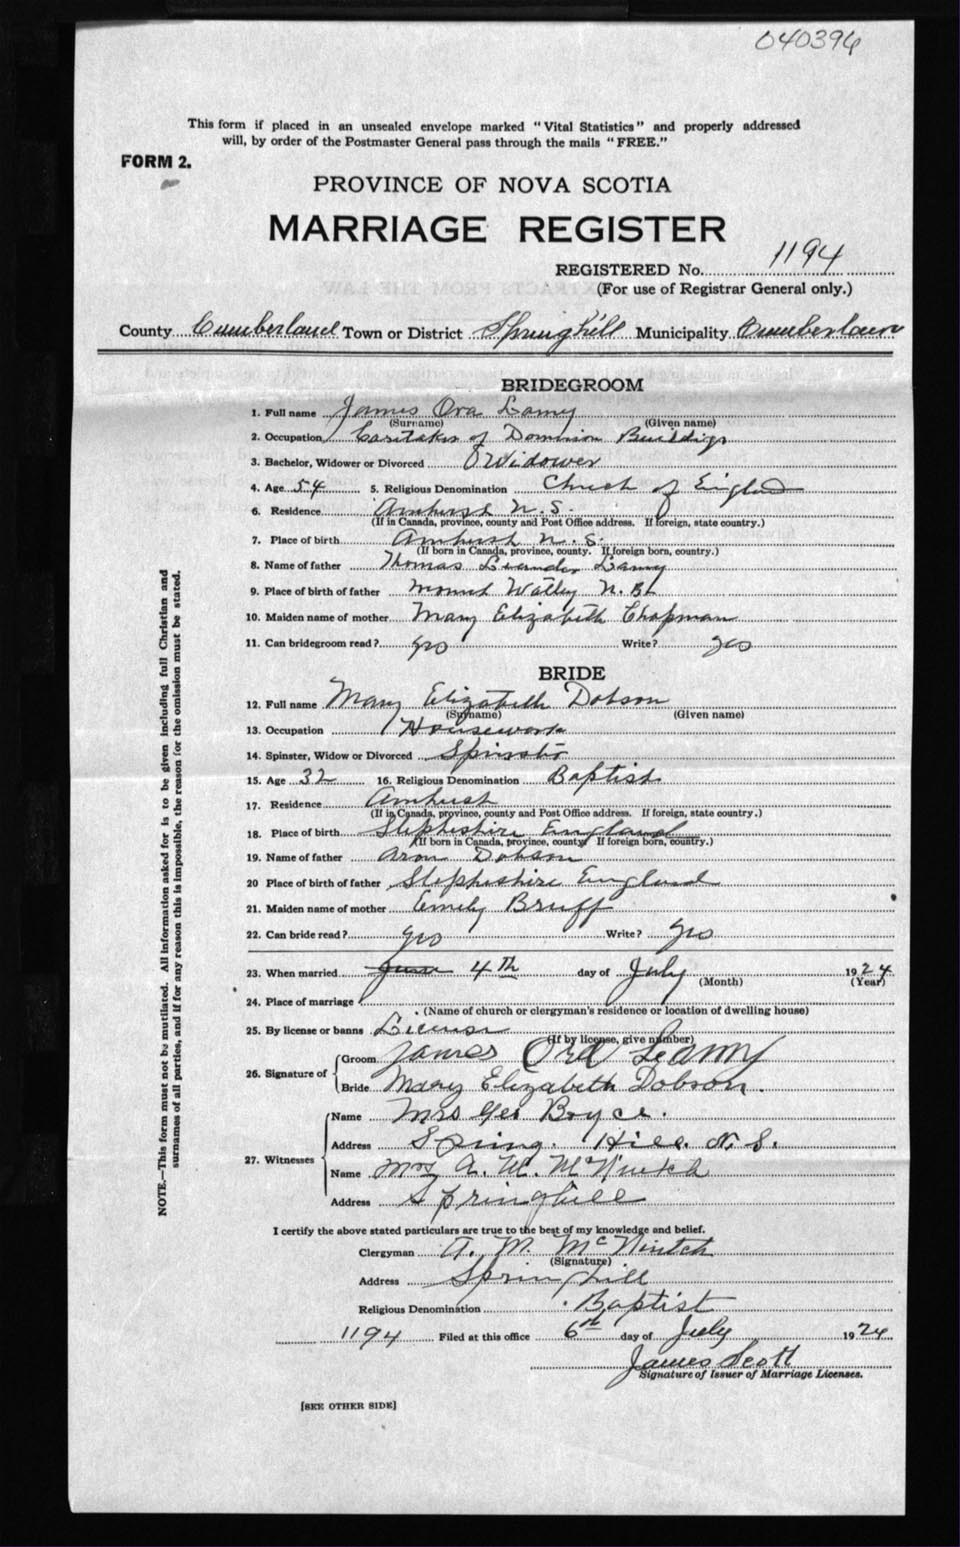 040396
This form if placed in an unsealed envelope marked "Vital Statistics" and properly addressed
will, by order of the Postmaster General pass through the mails "FREE."
FORM 2.
PROVINCE OF NOVA SCOTIA
MARRIAGE REGISTER
REGISTERED No. 1194
(For use of Registrar General only.)
County Cumberland Town or District Springhill Municipality Cumberland
BRIDEGROOM
1. Full name James Ora Lamy
(Surname) (Given name)
2. Occupation Caritaker of Dominion Buildings
3. Bachelor, Widower or Divorced Widower
4. Age 54 5. Religious Denomination Church of England
6. Residence Amherst N.S.
(If in Canada, province, county and Post Office address. If foreign, state country.)
7. Place of birth Amherst N.S.
(If born in Canada, province, county. If foreign born, country.)
8. Name of father Thomas Leander Lamy
9. Place of birth of father Mount Watley N.B.
10. Maiden name of mother Mary Elizabeth Chapman
11. Can bridegroom read? yes Write? yes
BRIDE
12. Full name Mary Elizabeth Dobson
(Surname) (Given name)
13. Occupation Housework
14. Spinster, Widow or Divorced Spinster
15. Age 32 16. Religious Denomination Baptist
17. Residence Amherst
(If in Canada, province, county and Post Office address. If foreign, state country.)
18. Place of birth Stepheshire England
(If born in Canada, province, county. If foreign born, country.)
19. Name of father Aron Dobson
20 Place of birth of father Stepheshire England
21. Maiden name of mother Emily Bruff
22. Can bride read? yes Write? yes
23. When married June 4th day of July 1924
(Month) (Year)
24. Place of marriage
(Name of church or clergyman's residence or location of dwelling house)
25. By license or banns License
(If by license, give number)
26. Signature of Groom James Ora Lamy
Bride Mary Elizabeth Dobson.
27. Witnesses Name Mrs Geo Boyce.
Address Spring. Hill. N.S.
Name Mrs A. M. McNintch
Address Springhill
I certify the above stated particulars are true to the best of my knowledge and belief.
Clergyman A. M. McNintch
(Signature)
Address Springhill
Religious Denomination Baptist
1194 Filed at this office 6th day of July 1924
James Scott
Signature of Issuer of Marriage Licenses.
[SEE OTHER SIDE]
NOTE.—This form must not be mutilated. All information asked for is to be given including full Christian and
surnames of all parties, and if for any reason this is impossible, the reason for the omission must be stated.